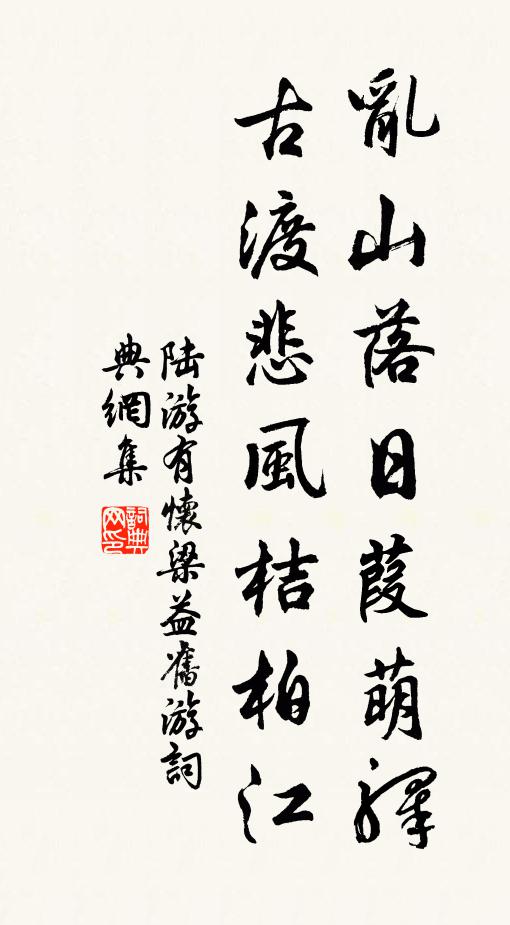 亂山落日葭萌驛
古渡悲風桔柏江
陸游有懷梁益舊游詞
典網集
詞典
网印